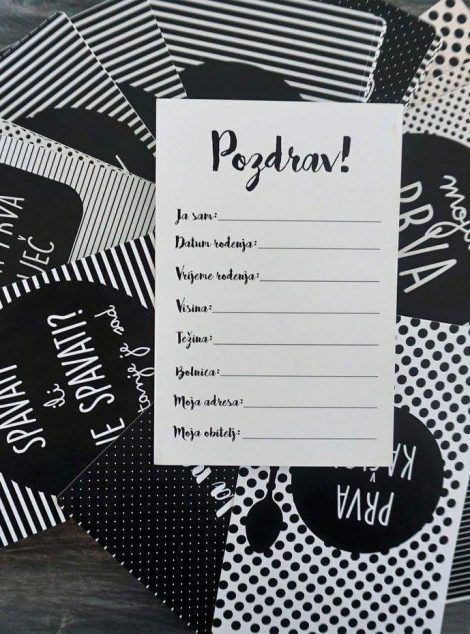 Pozdrav!
Ja sam:
Datum rođenja:
Vrijeme rođenja:
Visina:
Težina:
Bolnica:
Moja adresa:
Moja obitelj:
PRVA
SPAVATI
ili
NE SPAVATI?
pitanje je sad
PRVA
PRVA